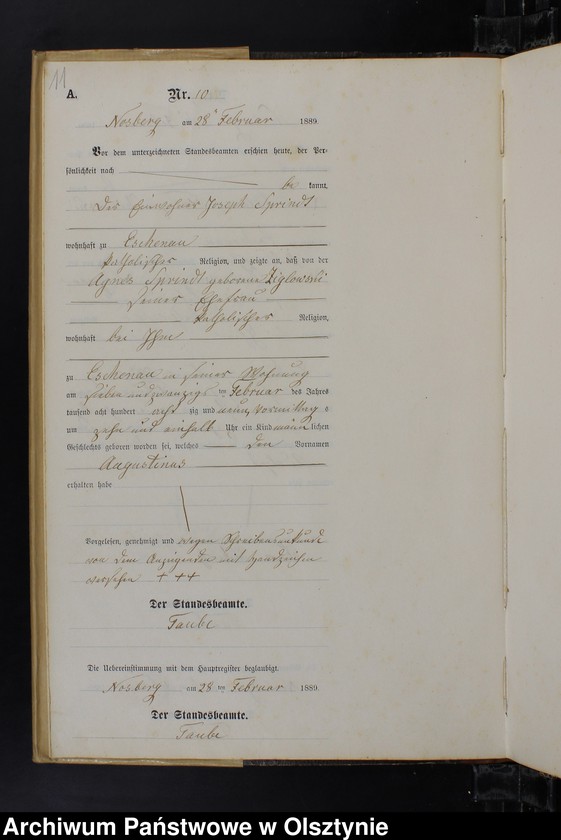 11
A.
Nr. 10
Nosberg am 28 Februar 1889.
Vor dem unterzeichneten Standesbeamten erschien heute, der Per-
sönlichkeit nach
be kannt,
Der Einwohner Joseph Sprindt
wohnhaft zu Eschenau
katholischer Religion, und zeigte an, daß von der
Agnes Sprindt geborene Ziglowski
seiner Ehefrau
katholischer Religion,
wohnhaft bei Ihm
zu Eschenau in seiner Wohnung
am sieben und zwanzigsten Februar des Jahres
tausend acht hundert acht zig und neun Vormittags
um zehn und einhalb Uhr ein Kind männlichen
Geschlechts geboren worden sei, welches den Vornamen
Augustinus
erhalten habe
Vorgelesen, genehmigt und wegen Schreibensunkunde
von dem Anzeigenden mit Handzeichen
versehen + ++
Der Standesbeamte.
Taube
Die Uebereinstimmung mit dem Hauptregister beglaubigt.
Nosberg am 28 ten Februar 1889.
Der Standesbeamte.
Taube
Archiwum Państwowe w Olsztynie